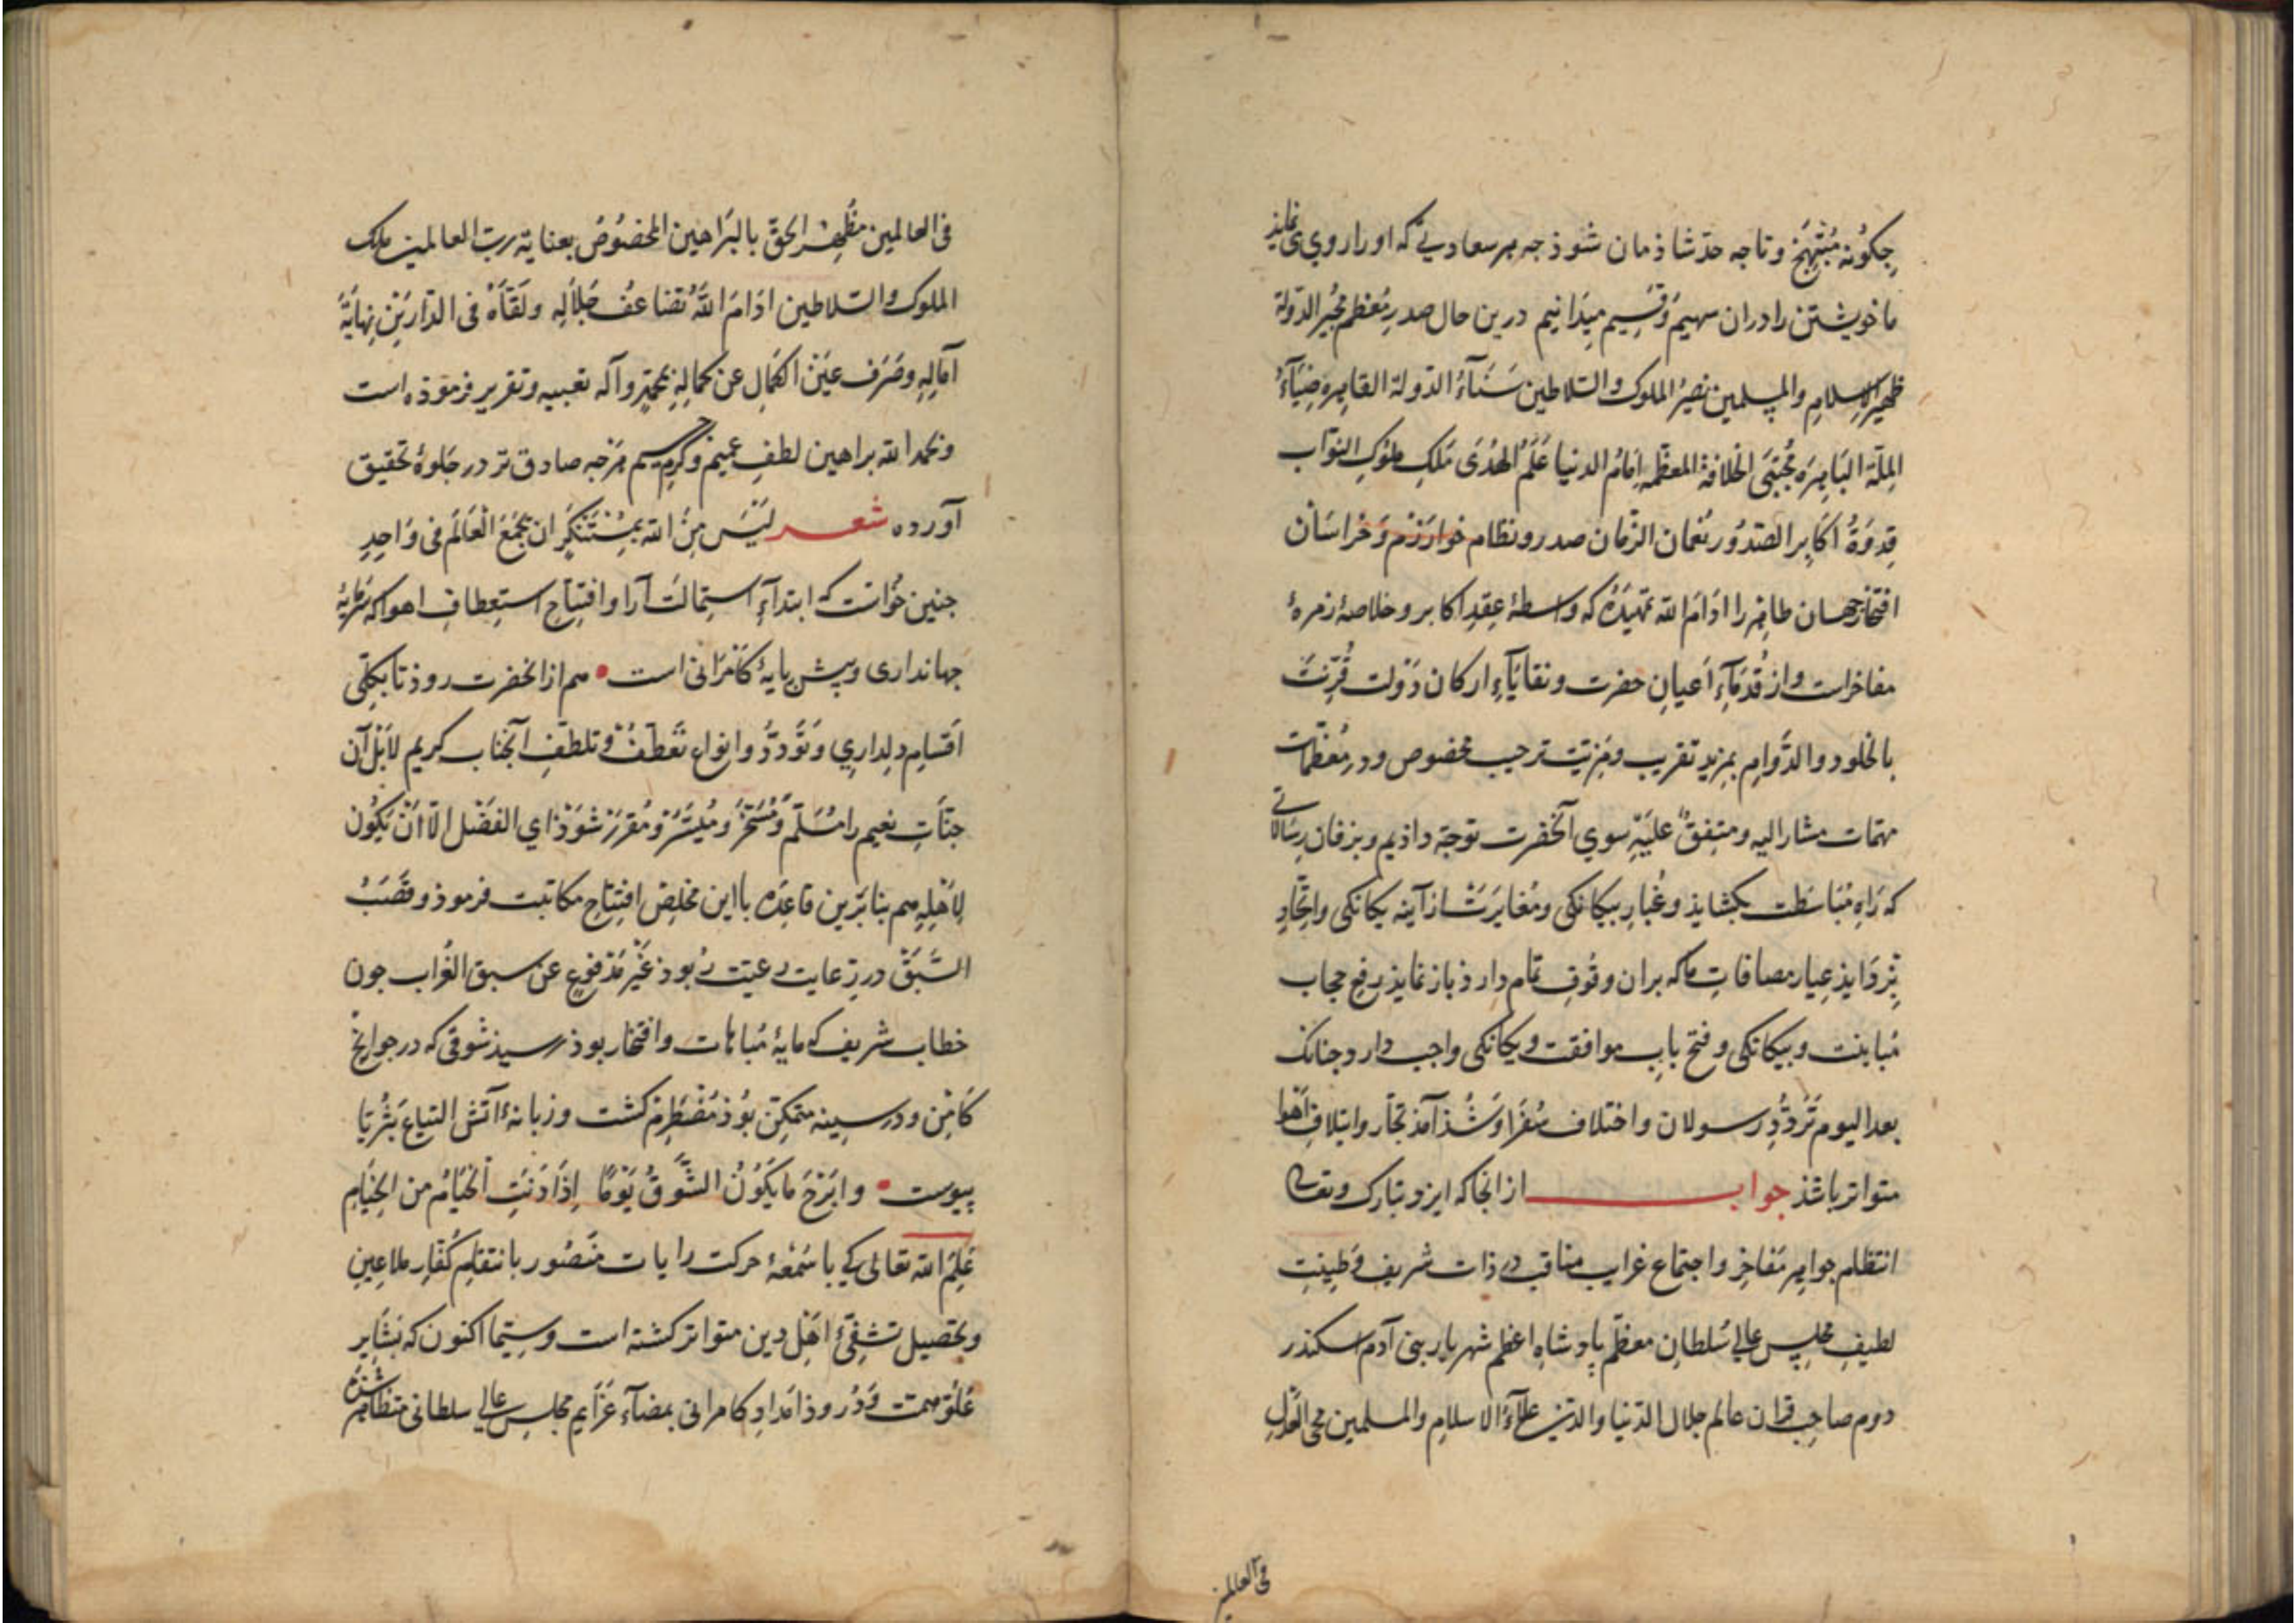 چکونه مُبْتَهِج وتا چه حدّ شاذمان شوذ چه هر سعادتی که او را روی می نماید
ما خویشتن را دران سهیم وَقسیم میدَانیم درین حال صدرِ مُعظم مجیر الدّولة
ظهیر الاسلامِ والمسلمین نصیرُ الملوک والسّلاطین سَنَآءُ الدّولة القاهرة ضیَآءُ
المِلّة البَاهِرَه مُجْتَبَی الخلافة المعظّمه اِمَامُ الدنیا عَلَمُ الهُدَی مَلِک ملوکِ النوّاب
قِدوَةُ اکَابِر الصّدُور نُعمان الزّمان صدر و نظام خوارَزْم وَخُراسَان
افتخار جهان طاهر را ادَامَ الله تمهیدَهُ که واسطهٔ عِقدِ اکابر وخلاصهٔ زمرهٔ
مفاخراست واز قُدمَآءِ اَعیانِ حضرت وبقایَآءِ ارکان دَوْلت قُرِنَتْ
بالخلود والدَّوامِ بمزیدِ تقریب ومَزِیّت ترحیب مخصوص ودر مُعظّمات
مهمّات مشار الیه ومتفقٌ علیَهِ سوی آنحضرت توجّه داذیم وبزفان رِسَالاتی
که رَاهِ مُبَاسَطَت بکشایذ وغُبارِ بیکانکی ومُغایَرَتْ از آینه یکانکی واتّحاد
بِزدَایذ عِیار مصافاتِ ما که بران وقُوفِ تمام دارذ باز نمایذ رفع حجاب
مُباینت وبیکانکی وفتح بابِ موافقت ویکانکی واجب دارد چنانک
بعد الیوم تَرَدُّدِ رسولان واختلاف سُفَرَا وَشُذ آمذ تجّار وایتلاف اَهْوا
متواتر باشذ جواب از انجا که ایزد تبارک وتعالی
انتظام جواهر مَفاخِر واجتماع غرایب مناقب در ذات شریف وطِینتِ
لطیفِ مجلِس عالی سُلطانِ معظّم پادشاهِ اعظم شهریار بنی آدم اسکندر
دوم صاحِب قران عالم جلال الدّنیا والدّین علآءُ الاسلامِ والمسلمین محی العَدْلِ
فی العالمین
فی العالمین مظهر الحَقّ بالبَراهین المخصُوصُ بعنایة ربّ العالمین ملِک
الملوک والسّلاطین ادَامَ اللهُ تضاعُفَ جَلَالِهِ ولَقّاهُ فی الدّارَیْنِ نِهایَةَ
آمَالِهِ وصَرَفَ عَیْنَ الکمَالِ عن کمالِهِ بمحمّدٍ وآله تعبیه وتقریر فرموذه است
وبحمد الله براهین لطفِ عمیم وکرمِ جسیم هرچه صادق تر در جَلوهٔ تحقیق
آورده شعر لَیْسَ مِنَ الله بِمُسْتَنْکَرٍ ان یَجْمَعَ الْعَالَمَ فی وَاحِدِ
چنین خواست که ابتدآءِ استِمالَت آرا وافتتاحِ استِعطافِ اهوا که سَرمایهٔ
جهانداری وپیش پایهٔ کامْرَانی است هم از آنحضرت روذ تا بکلّی
اَقسامِ دلداری وَتَوَدّدُ وانواعِ تَعَطّفْ وتلطّفِ آنجناب کریم لا بَلْ آن
جنّاتِ نعیم را مُسَلّم وَمُسَخّر ومُیسّرْ ومُقرّرْ شوَذ ذَایِ الفَضْل الّا اَنْ یَکُون
لِاَهْلِهِ هم بنابَرین قاعِدَه با این مخلِص افتتاحِ مکاتبت فرموذ وقَصَبُ
السَّبَقْ در رعایت رعیّت رُبوذ غَیْرَ مَدْفوعٍ عن سبق الغُراب چون
خطاب شریف که مایهٔ مُباهات وافتخار بوذ رسیذ شَوقی که در جوانح
کَامِن ودر سینه متمکّن بُوذ مُضْطَرِم کشت وزبانهٔ آتشِ التیاع بَثُریّا
پیوست وابْرَحُ مَا یَکُوُنُ الشّوقُ یَوْمًا اِذَا دَنَتِ الْخَیامُ من الْخِیَامِ
عَلِمَ الله تعالی کی تا سُمْعَهٔ حرکت رایات منصُور بانتقامِ کُفّارِ ملاعِین
وبتحصیل تشَفّیِ اهْلِ دین متواتر کشته است وسیّما اکنون که بَشایر
عُلُوّ همّت وَدُر وذ اَمْدادِ کامرانی بمضآءِ عَزایم مجلِس عالی سلطانی متظاهر شذه